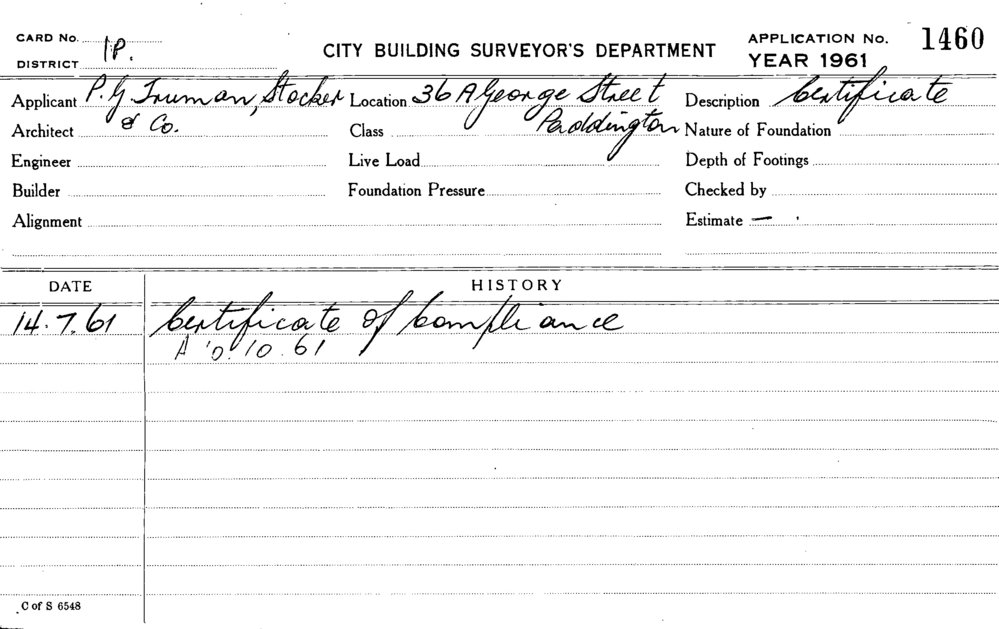 CARD No. 1P.
DISTRICT
CITY BUILDING SURVEYOR'S DEPARTMENT
APPLICATION No. 1460
YEAR 1961
Applicant P. G Truman, Stocker & Co.
Location 36 A George Street Paddington
Description Certificate
Architect
Class
Nature of Foundation
Engineer
Live Load
Depth of Footings
Builder
Foundation Pressure
Checked by
Alignment
Estimate —
DATE HISTORY
14.7.61 Certificate of Compliance
A 10 61
C of S 6548